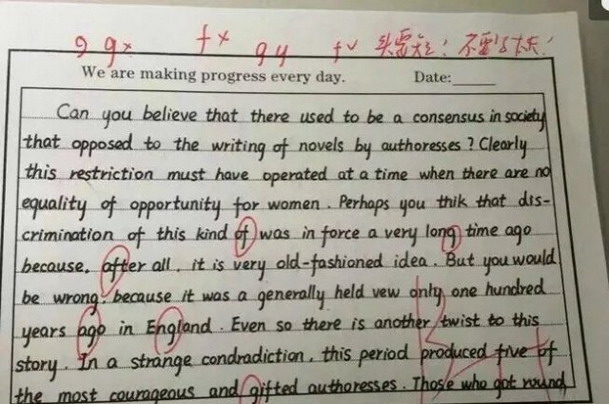 9 g× f× 9y f✓ 头要短! 不要写太长!
We are making progress every day. Date:
Can you believe that there used to be a consensus in society
that opposed to the writing of novels by authoresses ? Clearly
this restriction must have operated at a time when there are no
equality of opportunity for women . Perhaps you thik that dis-
crimination of this kind of was in force a very long time ago
because, after all , it is very old-fashioned idea . But you would
be wrong, because it was a generally held vew only one hundred
years ago in England . Even so there is another twist to this
story . In a strange condradiction , this period produced five of
the most courageous and gifted authoresses . Those who got round